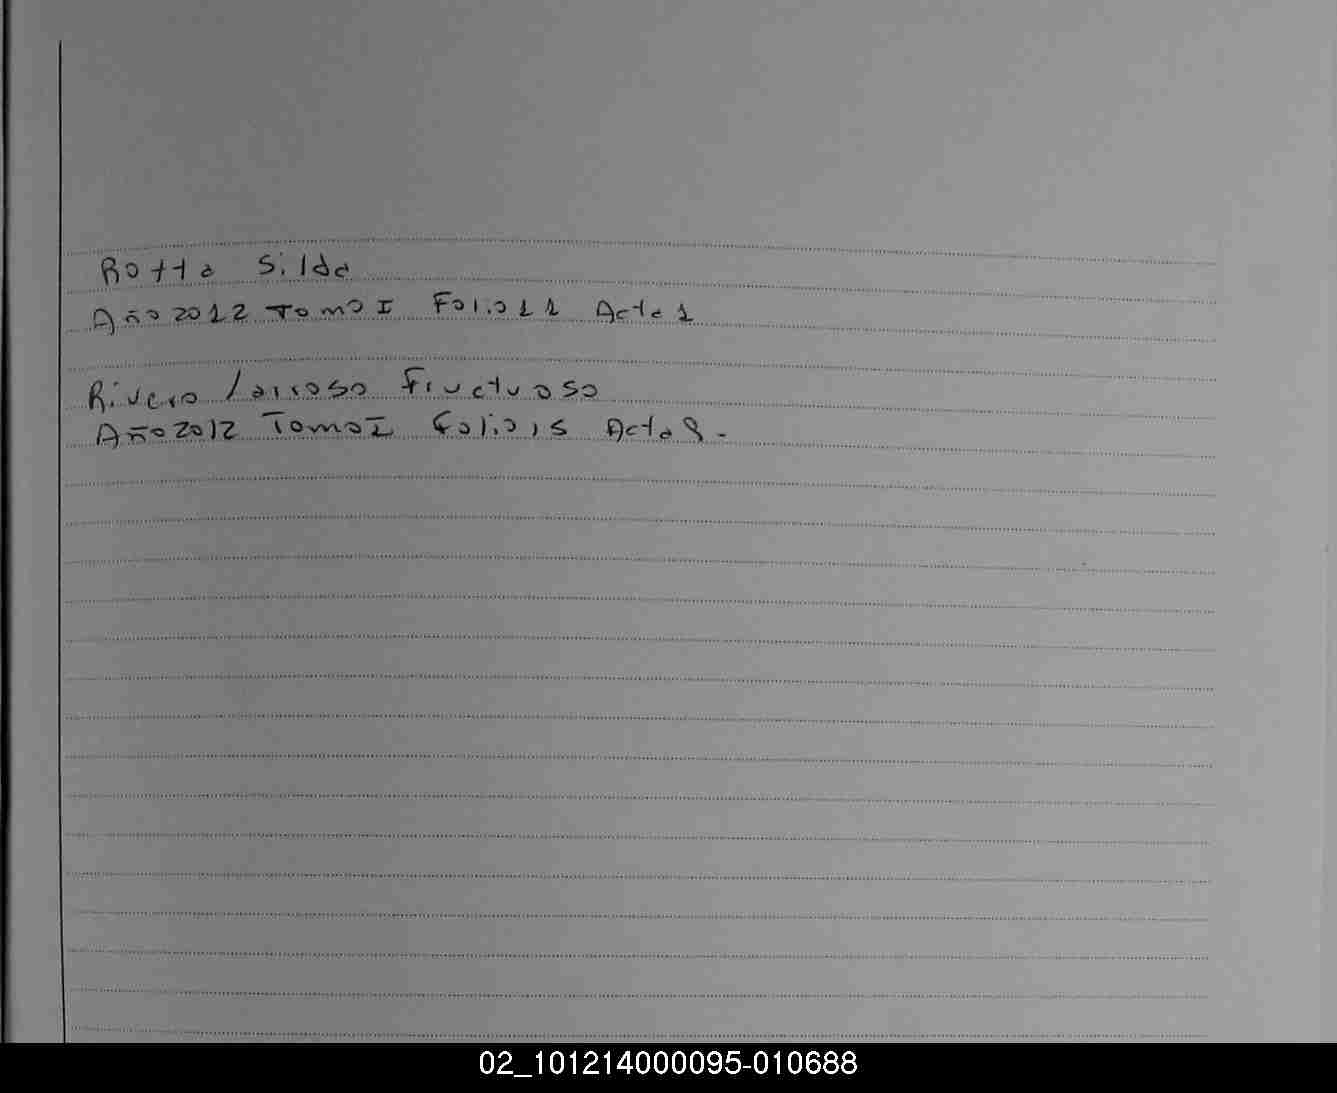 Rotta Silda
Año 2012 Tomo I Folio 11 Acta 1
Rivero Larroso Fructuoso
Año 2012 Tomo I Folio 15 Acta 8.-
02_101214000095-010688